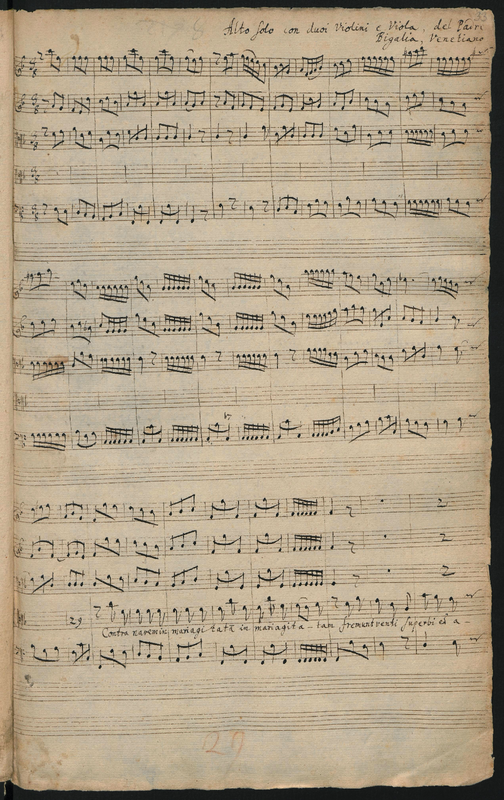 Alto solo con duoi Violini e Viola. del Padre
Bigalia, Veneziano
29
Contra navem in mariagitatã in mariagita - tam fremunt venti superbi et a -
29